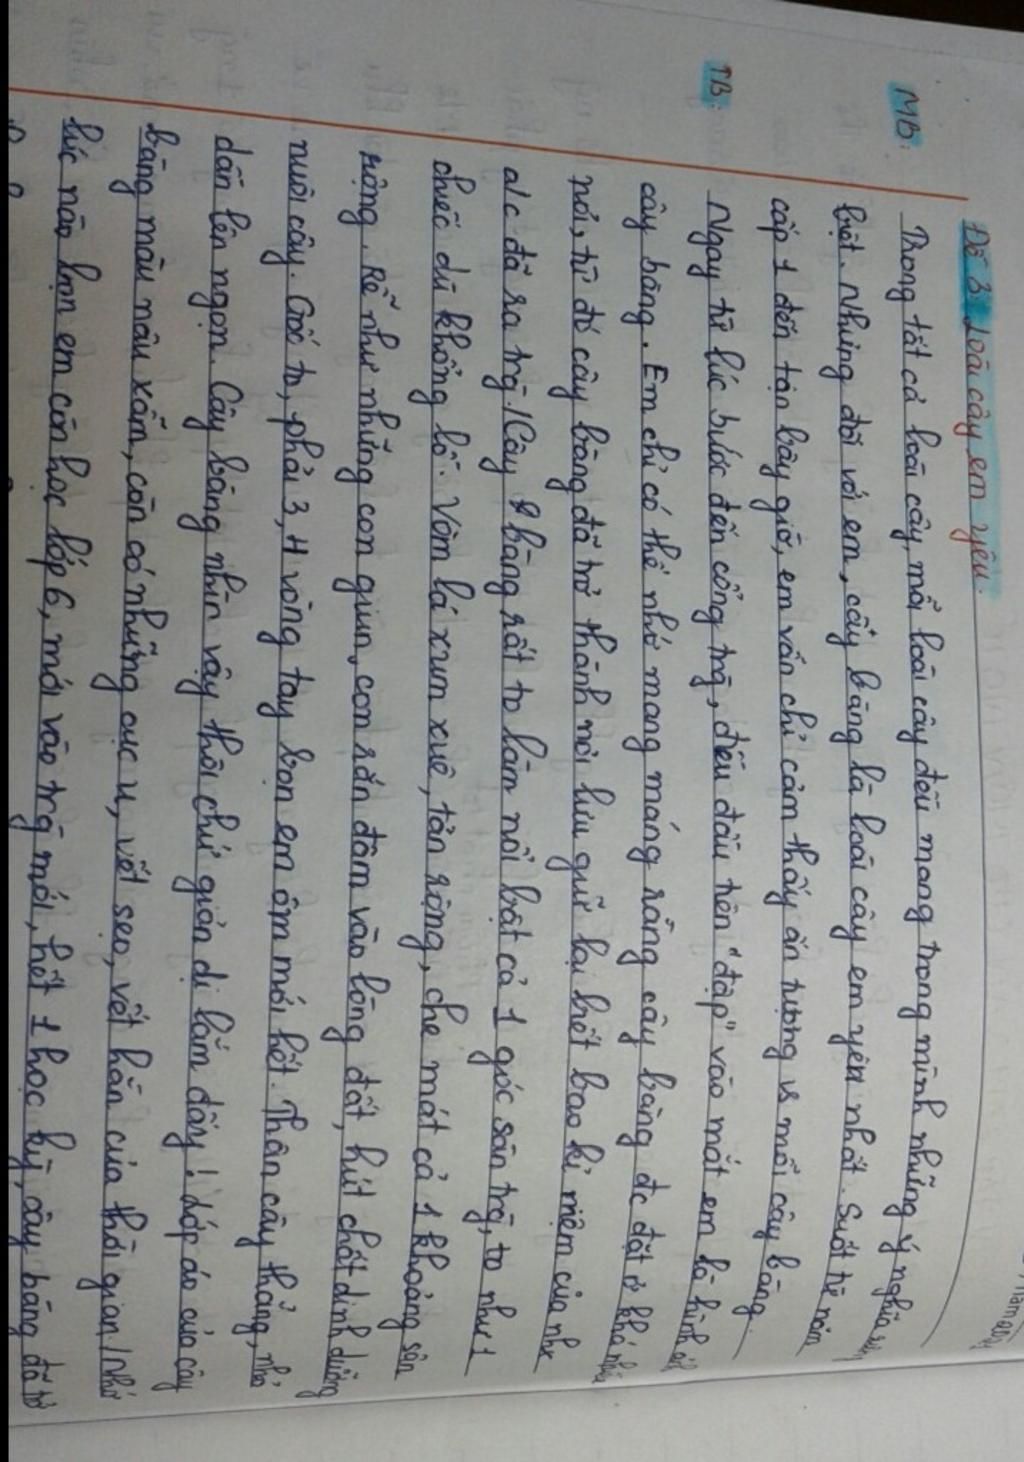 Đề 3: Loài cây em yêu.
MB:
Trong tất cả loài cây, mỗi loài cây đều mang trong mình những ý nghĩa
biệt. Nhưng đối với em, cây bàng là loài cây em yêu nhất. Suốt từ năm
cấp 1 đến tận bây giờ, em vẫn chỉ cảm thấy ấn tượng vs mỗi cây bàng.
TB:
Ngay từ lúc bước đến cổng trg, điều đầu tiên "đập" vào mắt em là hình
cây bàng. Em chỉ có thể nhớ mang máng rằng cây bàng đc đặt ở khá
nói, từ đó cây bàng đã trở thành nơi lưu giữ lại biết bao kỉ niệm của
a/c đã ra trg. / Cây bàng rất to làm nổi bật cả 1 góc sân trg, to như 1
chiếc dù khổng lồ. Vòm lá xum xuê, tán rộng, che mát cả 1 khoảng sân
rộng. Rễ như những con giun, con rắn đâm vào lòng đất, hút chất dinh dưỡng
nuôi cây. Gốc to, phải 3, 4 vòng tay bọn em ôm mới hết. Thân cây thẳng, nhỏ
dần lên ngọn. Cây bàng nhìn vậy thôi chứ giản dị lắm đấy! Lớp áo của cây
bàng màu nâu xỉn, còn có những cục u, vết sẹo, vết hằn của thời gian / Nhớ
lúc nào bọn em còn học lớp 6, mới vào trg mới, hết 1 học kỳ, cây bàng đã